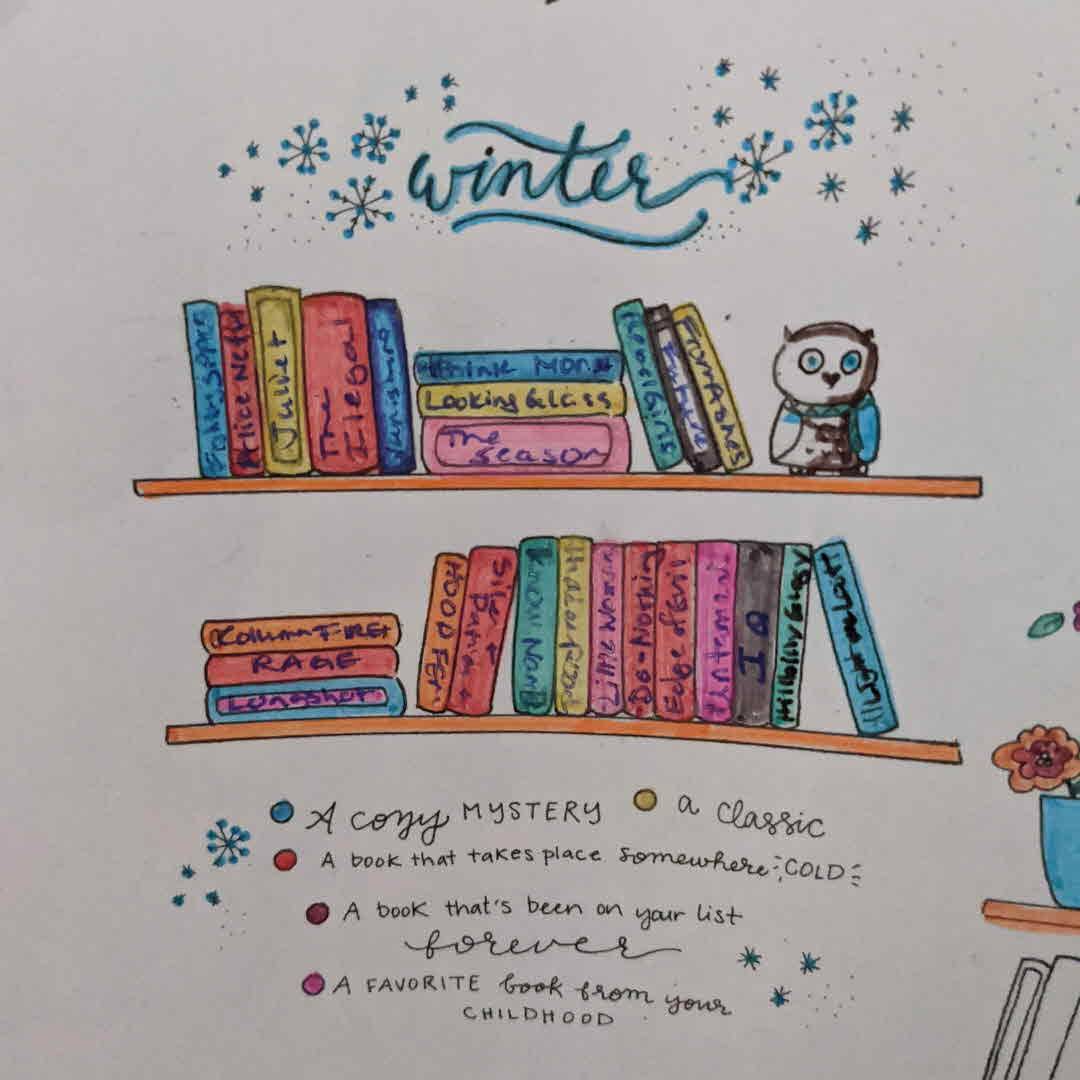 winter
Alice Netw
Juliet
The
Illegal
Think More
Looking Glass
The
Season
Future
From Ashes
Column FIRE
RAGE
Longshot
HOOD FE
Know Nam
Little Women
Do Nothing
Edge of Evil
I Q
Hillbilly Elegy
A cozy MYSTERY
a classic
A book that takes place somewhere COLD
A book that's been on your list
forever
A FAVORITE book from your
CHILDHOOD